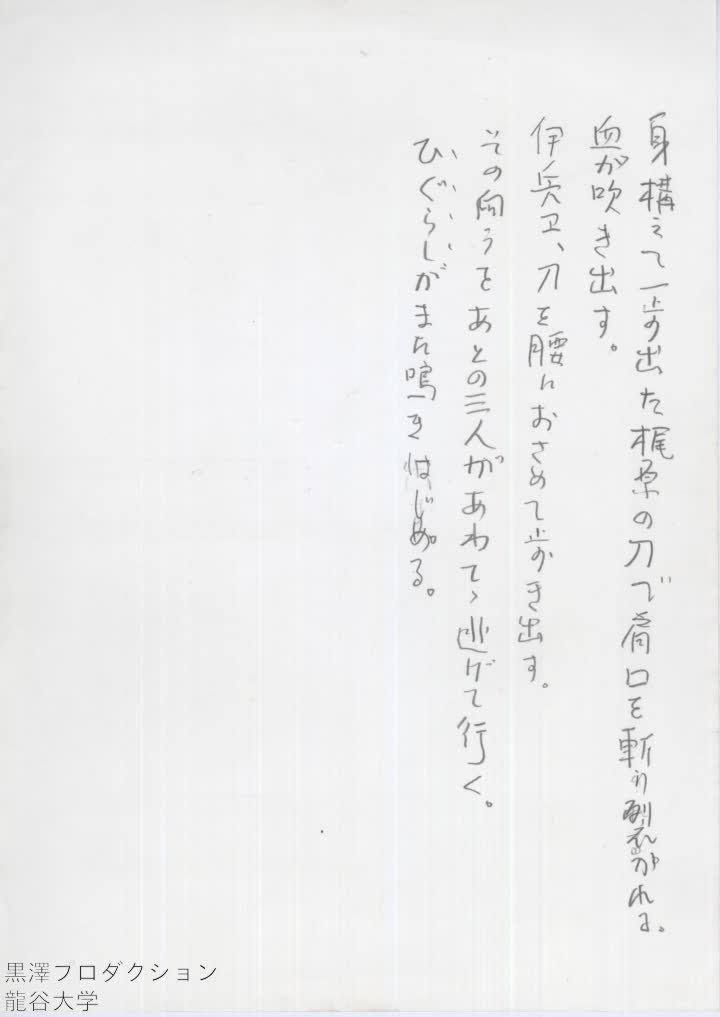 身構えて一歩出た梶原の刀で肩口を斬り裂かれ、
血が吹き出す。
伊兵卫、刀を腰におさめて歩き出す。
その向うをあとの三人があわてゝ逃げて行く。
ひぐらしがまた鳴きはじめる。
黒澤プロダクション
龍谷大学